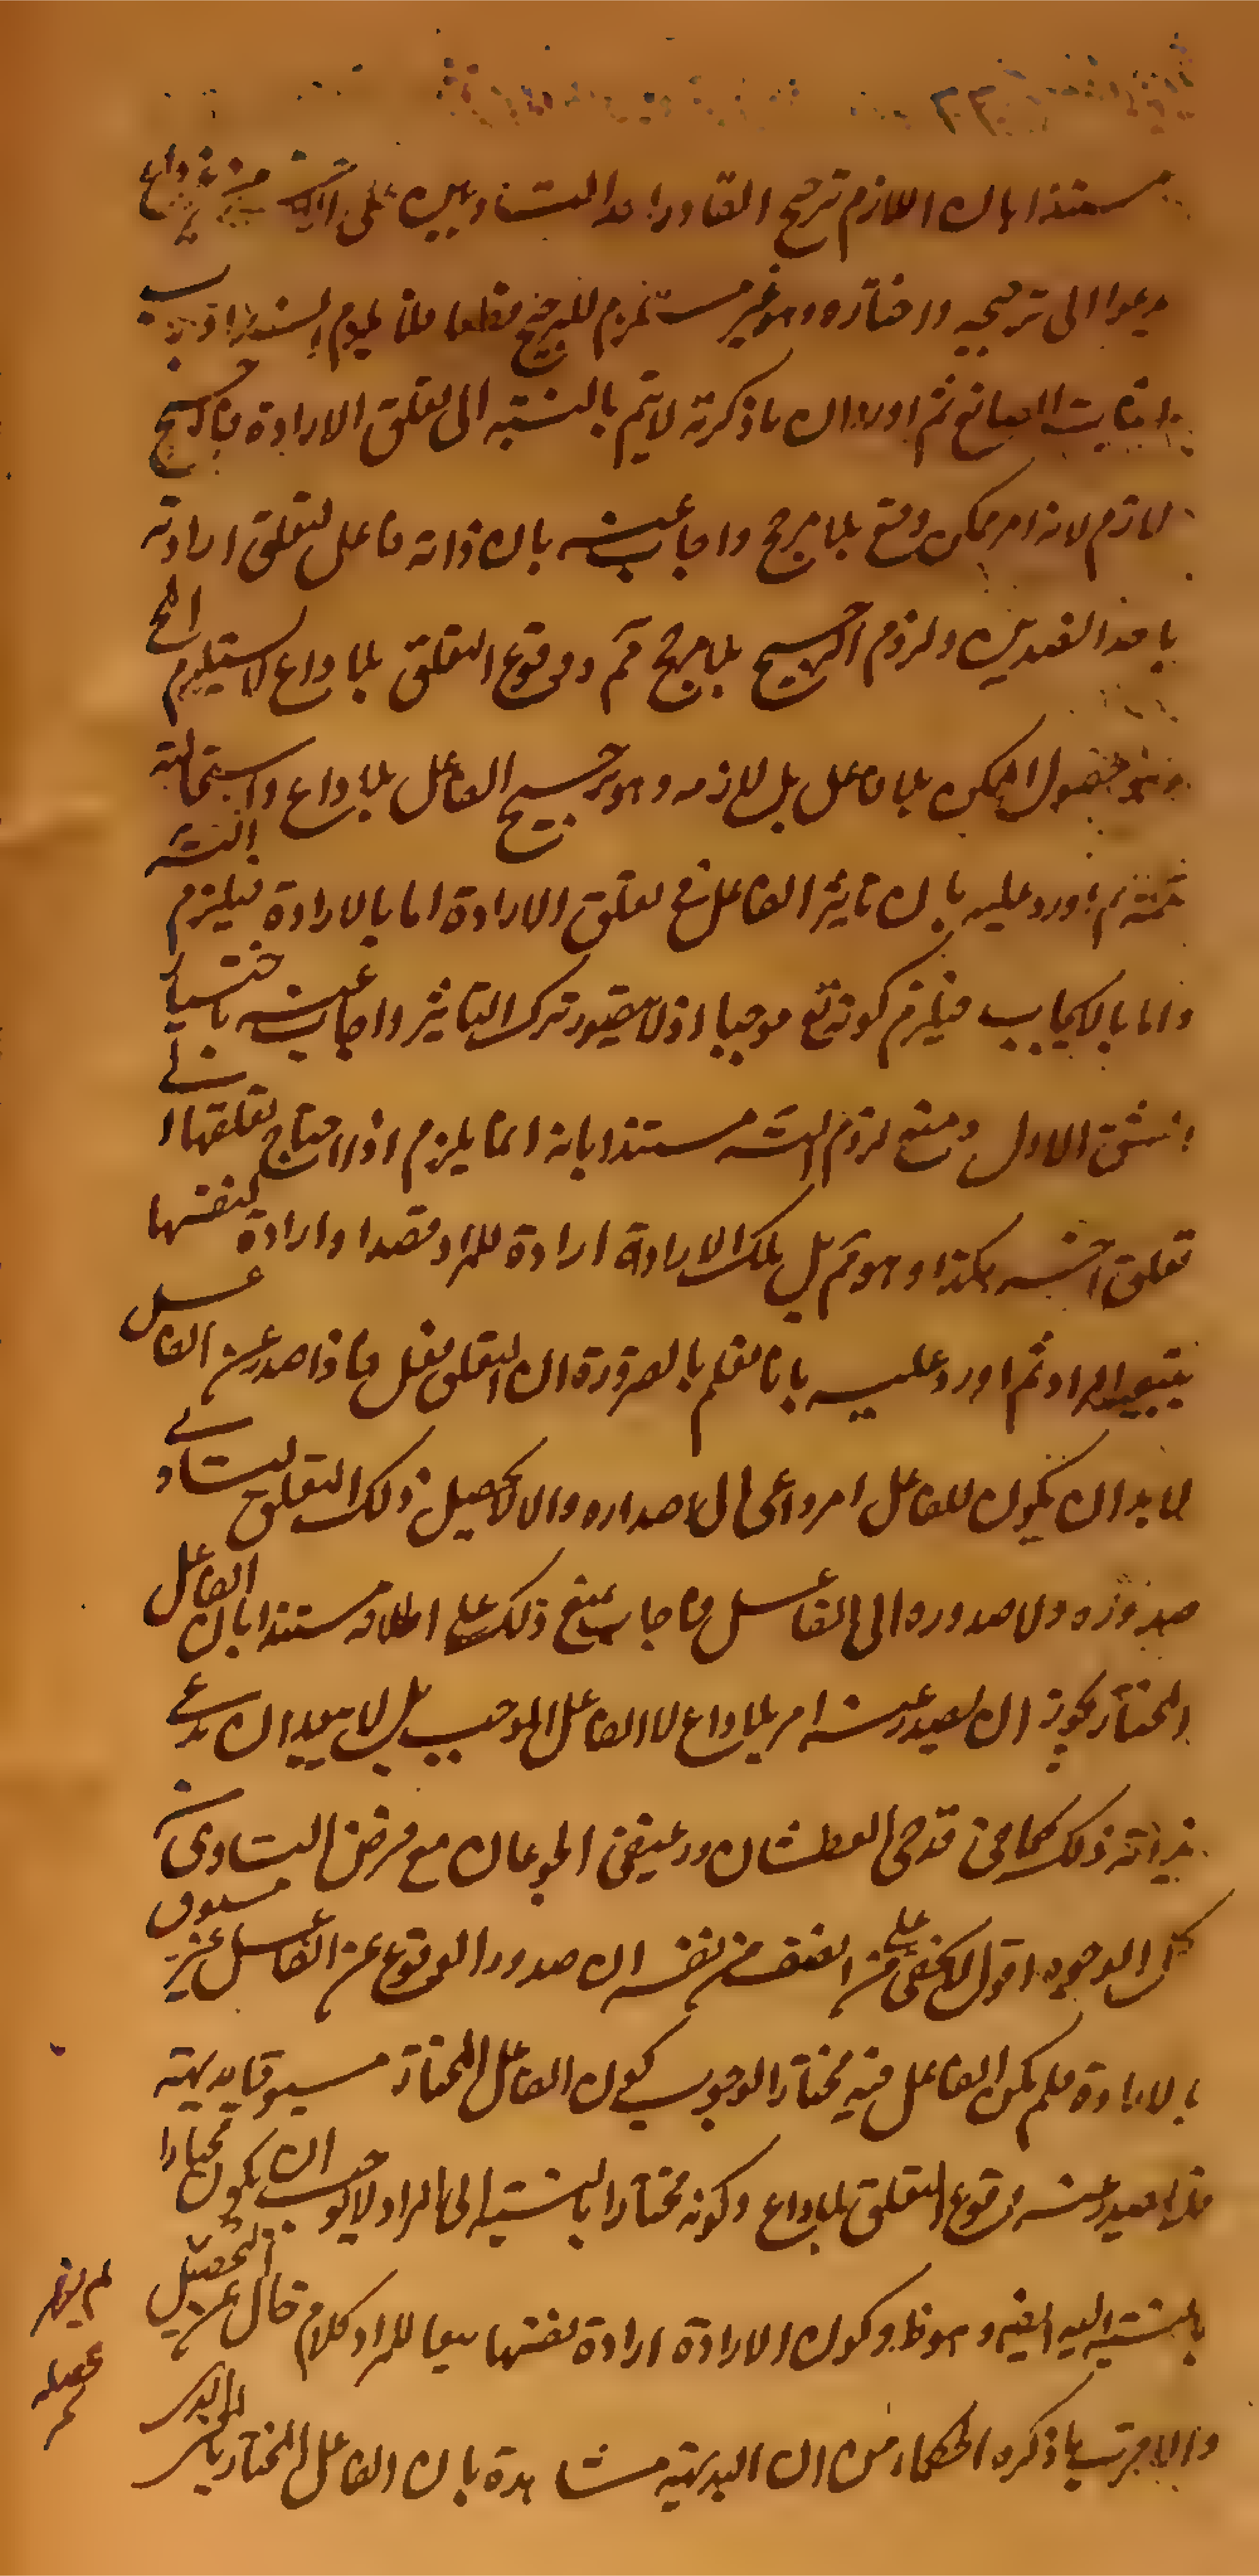 مستندا بان اللازم ترجيح القادر احد المتساويين على الاخر من غير داع
يدعوا الى ترجيحه واختاره وهو غير مستلزم للترجيح مطلقا فلا يلزم انسداد باب
اثبات الصانع ثم اورد ان ما ذكرته لا يتم بالنسبة الى تعلق الارادة فالترجيح
لازم لانه امر ممكن وقع بلا مرجح واجاب عنه بان ذاته فاعل لتعلق ارادته
باحد الضدين ولزوم الترجيح بلا مرجح مم ووقوع التعلق بلا داع لا يستلزم المح
وهو حصول الممكن بلا فاعل بل لازمه وهو ترجيح الفاعل بلا داع واستحالته
ثم اورد عليه بان تاثير الفاعل في تعلق الارادة اما بالارادة فيلزم التسه
واما بالايجاب فيلزم كونه تع موجبا اذ لا يتصور ترك التاثير واجاب عنه باختيار
الشق الاول ومنع لزوم التسه مستندا بانه انما يلزم اذا احتاج تعلقها الى
تعلق اخر هكذا وهو مم بل تلك الارادة ارادة للمراد قصدا وارادة لنفسها
بتبعية المراد ثم اورد عليه بانا نعلم بالضرورة ان التعلق فعل فاذا صدر عن الفاعل
لا بد ان يكون للفاعل امر داعى الى اصداره والا لا يحصل ذلك التعلق لتساوى
صدوره ولا صدوره الى الفاعل فاجاب بمنع ذلك على اطلاقه مستندا بان الفاعل
المختار يجوز ان يصدر عنه امر بلا داع لا الفاعل الموجب بل لا يبعد ان يدعى
بداهة ذلك كما في قدحى العطشان ورغيفى الجوعان مع فرض التساوى من
كل الوجوه اقول لا يخفى على من انصف من نفسه ان صدور الوقوع عن الفاعل غير مسبوق
بالارادة فلم يكن الفاعل فيه مختارا لوجوب كون الفاعل المختار مسبوقا بديهة
فلا يصدر عنه وقوع التعلق بلا داع وكونه مختارا بالنسبة الى المراد لا يوجب ان يكون مختارا
بالنسبة اليه ايضا وهو ظ وكون الارادة ارادة لنفسها تبعا للمراد كلام خال عن التحصيل
والاقرب ما ذكره الحكماء من ان البديهة مشاهدة بان الفاعل المختار بالمعنى الذى